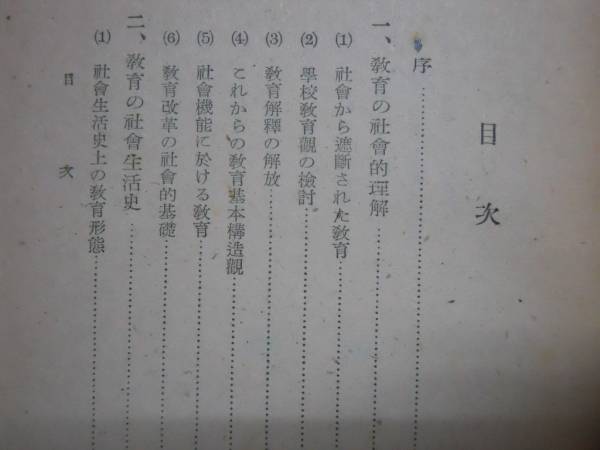 目次
序……………………
一、教育の社會的理解……………………
(1) 社會から遮斷された教育……………………
(2) 學校教育觀の檢討……………………
(3) 教育解釋の解放……………………
(4) これからの教育基本構造觀……………………
(5) 社會機能に於ける教育……………………
(6) 教育改革の社會的基礎……………………
二、教育の社會生活史……………………
(1) 社會生活史上の教育形態……………………
目次